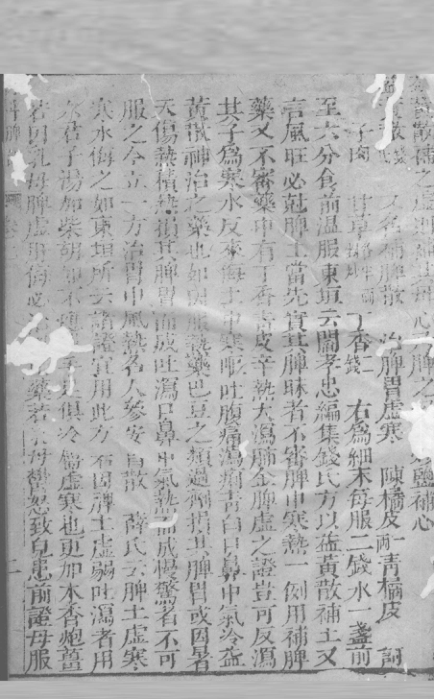 益黃散補之
益黃散 又名補脾散 治脾胃虛寒 陳橘皮一兩 青橘皮 訶
子肉 甘草 丁香二錢 右為細末每服二錢水一盞煎
至六分食前溫服東垣云閻孝忠編集錢氏方以益黃散補土又
言風旺必尅脾土當先實其脾昧者不審脾中寒熱一例用補脾
藥又不審藥中有丁香青皮辛熱大瀉肺金脾虛之證豈可反瀉
其子為寒水反來侮土中寒嘔吐腹痛瀉痢青白口鼻中氣冷益
黃散神治之藥也如因服熱藥巴豆之類過劑損其脾胃或因暑
天傷熱積熱損其脾胃而成吐瀉口鼻中氣熱而成慢驚者不可
服之今立一方治胃中風熱名人參安胃散 薛氏云脾土虛寒
寒水侮之如東垣所云諸證宜用此方 若因脾土虛弱吐瀉者用
六君子湯加柴胡如不應 是俱冷 屬虛寒也更加木香炮薑
若因乳母脾虛肝侮必 藥若因母鬱怒致兒患前證母服